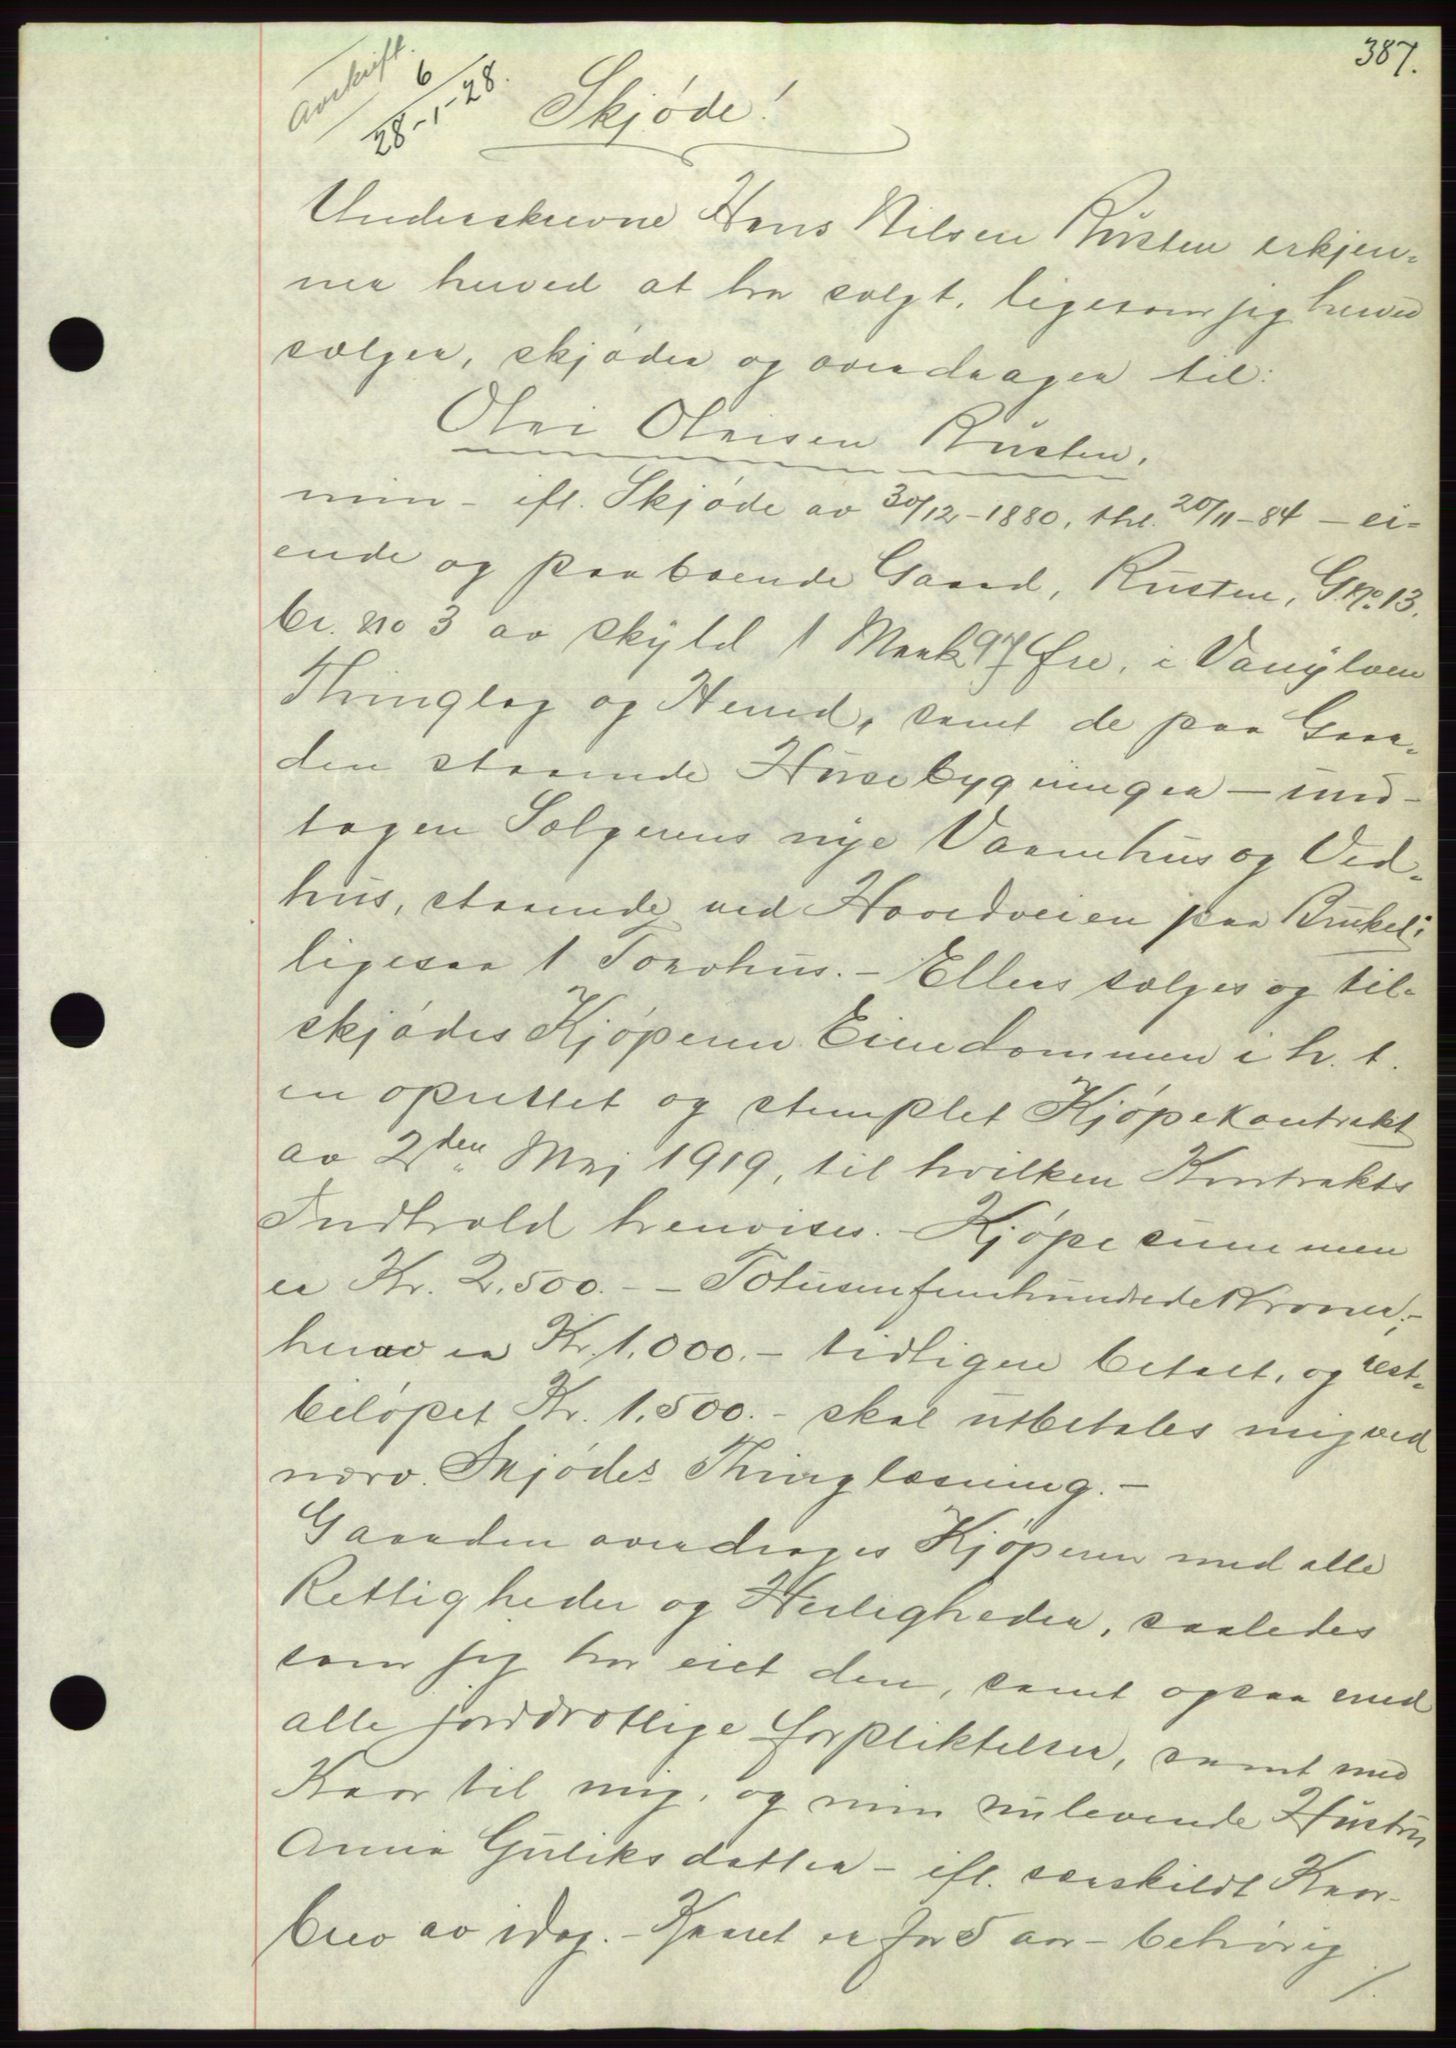 387.
Avskrift.
6
28-1-28.
Skjøde!
Underskrevne Hans Nilsen Rusten erkjen-
ner herved at ha solgt, ligesom jeg herved
sælger, skjøder og overdrager til:
Olai Olaisen Rusten,
min - ifl. Skjøde av 30/12-1880, thl. 20/11-84 - ei-
ende og paaboende Gaard, Rusten, G.No. 13.
br. no 3 av skyld 1 Mark 97 Øre, i Vanylven
Thinglag og Herred, samt de paa Gaar-
den staaende Husebygninger - und-
tagen Sælgerens nye Vaanehus og Ved-
hus, staaende ved Hovedveien paa
ligesaa 1 Torvhus. - Ellers sælges og til-
skjødes Kjøperen Eiendommen i h. t.
en oprettet og stemplet Kjøpekontrakt
av 2den Maj 1919, til hvilken Kontrakts
Indhold henvises. - Kjøpesummen
er Kr. 2,500. - - Totusenfemhundrede Kroner; -
herav er Kr. 1,000. - tidligere betalt, og rest-
beløpet Kr. 1,500. - skal utbetales mig ved
nærv. Skjødes Thinglæsning. -
Gaarden overdrages Kjøperen med alle
Rettigheder og Herligheder, saaledes
som jeg har eiet den, samt ogsaa med
alle jorddrotlige forpliktelser, samt med
Kaar til mig, og min nulevende Hustru
Anna Guliksdatter - ifl. særskildt Kaar-
brev av idag. - Kaaret er for 5 aar - behørig
/.